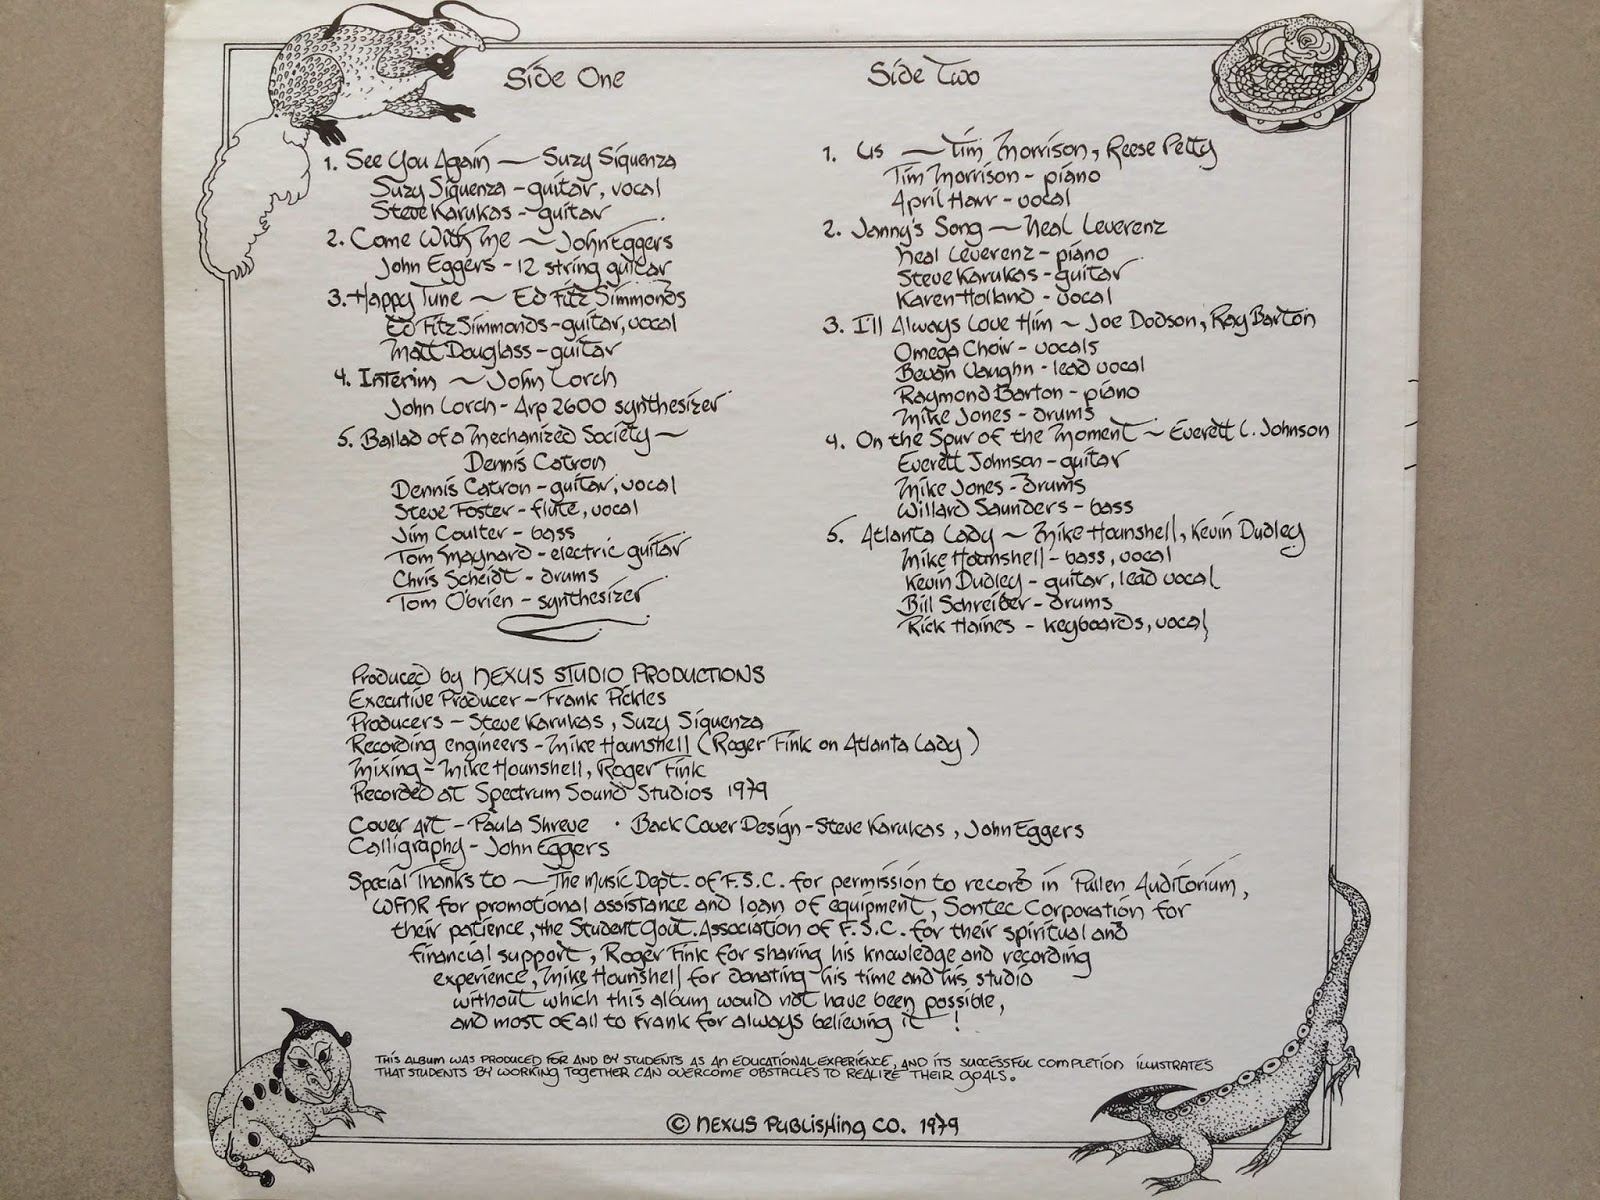 Side One
1. See You Again ~ Suzy Siquenza
Suzy Siguenza - guitar, vocal
Steve Karukas - guitar
2. Come With Me ~ John Eggers
John Eggers - 12 string guitar
3. Happy Tune ~ Ed Fitz Simmonds
Ed Fitz Simmonds - guitar, vocal
Matt Douglass - guitar
4. Interim ~ John Lorch
John Lorch - Arp 2600 synthesizer
5. Ballad of a Mechanized Society ~
Dennis Catron
Dennis Catron - guitar, vocal
Steve Foster - flute, vocal
Jim Coulter - bass
Tom Maynard - electric guitar
Chris Scheidt - drums
Tom O'Brien - synthesizer
Side Two
1. Us ~ Tim Morrison, Reese Petty
Tim Morrison - piano
April Harr - vocal
2. Janny's Song ~ Neal Leverenz
Neal Leverenz - piano
Steve Karukas - guitar
Karen Holland - vocal
3. I'll Always Love Him ~ Joe Dodson, Ray Barton
Omega Choir - vocals
Bevan Vaughn - lead vocal
Raymond Barton - piano
Mike Jones - drums
4. On the Spur of the Moment ~ Everett L. Johnson
Everett Johnson - guitar
Mike Jones - drums
Willard Saunders - bass
5. Atlanta Lady ~ Mike Hounshell, Kevin Dudley
Mike Hounshell - bass, vocal
Kevin Dudley - guitar, lead vocal
Bill Schreiber - drums
Rick Haines - keyboards, vocal
Produced by NEXUS STUDIO PRODUCTIONS
Executive Producer - Frank Pickles
Producers - Steve Karukas, Suzy Siguenza
Recording engineers - Mike Hounshell (Roger Fink on Atlanta Lady)
Mixing - Mike Hounshell, Roger Fink
Recorded at Spectrum Sound Studios 1979
Cover Art - Paula Shreve · Back Cover Design - Steve Karukas, John Eggers
Calligraphy - John Eggers
Special Thanks to ~ The Music Dept. of F.S.C. for permission to record in Pullen Auditorium,
WFNR for promotional assistance and loan of equipment, Sontec Corporation for
their patience, the Student Govt. Association of F.S.C. for their spiritual and
financial support, Roger Fink for sharing his knowledge and recording
experience, Mike Hounshell for donating his time and his studio
without which this album would not have been possible,
and most of all to Frank for always believing it!
THIS ALBUM WAS PRODUCED FOR AND BY STUDENTS AS AN EDUCATIONAL EXPERIENCE, AND ITS SUCCESSFUL COMPLETION ILLUSTRATES
THAT STUDENTS BY WORKING TOGETHER CAN OVERCOME OBSTACLES TO REALIZE THEIR GOALS.
© NEXUS PUBLISHING CO. 1979